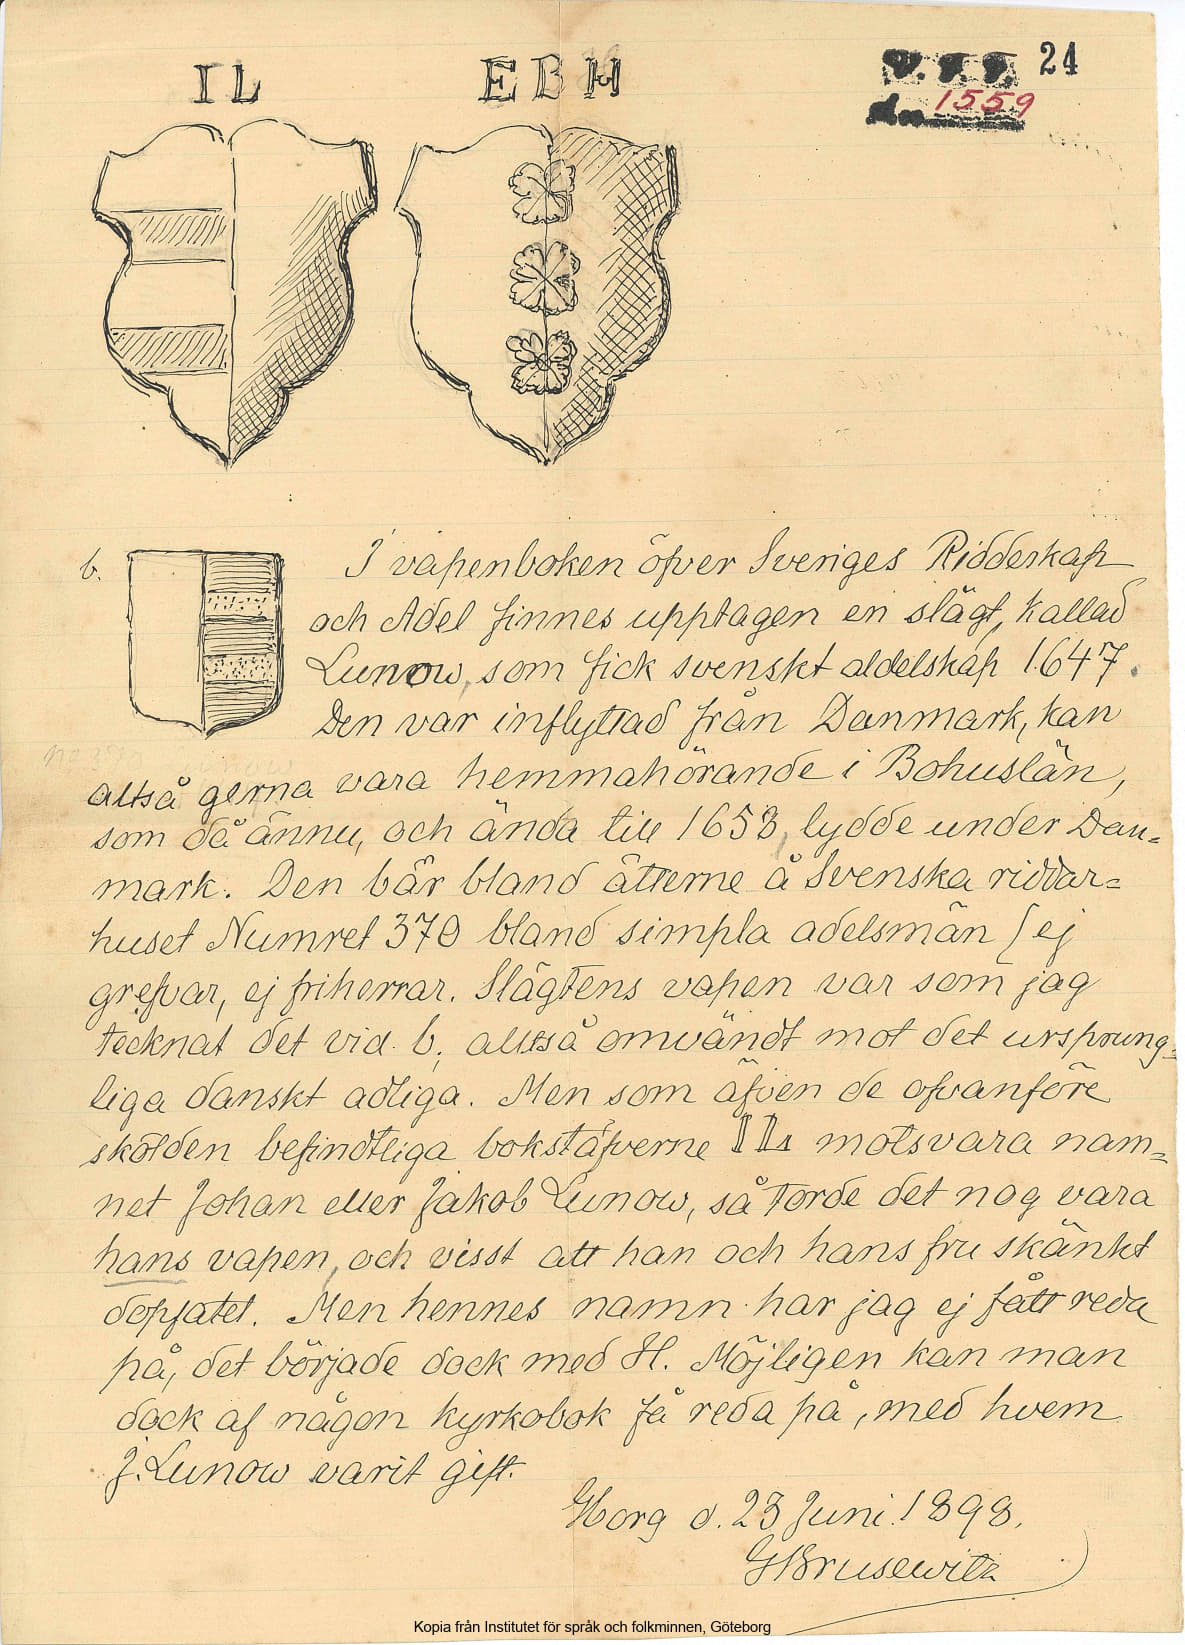 IL EBH
24
1559
b.
I vapenboken öfver Sveriges Ridderskap
och Adel finnes upptagen en slägt, kallad
Lunow, som fick svenskt aldelskap 1647.
Den var inflyttad från Danmark, kan
altså gerna vara hemmahörande i Bohuslän,
som då ännu, och ända till 1658, lydde under Dan=
mark. Den bär bland ätterne å Svenska riddar=
huset Numret 370 bland simpla adelsmän (ej
grefvar, ej friherrar. Slägtens vapen var som jag
tecknat det vid b, alltså omvändt mot det ursprung=
liga danskt adliga. Men som äfven de ofvanföre
skölden befindtliga bokstäfverne IL motsvara nam=
net Johan eller Jakob Lunow, så torde det nog vara
hans vapen, och visst att han och hans fru skänkt
dopfatet. Men hennes namn har jag ej fått reda
på, det började dock med H. Möjligen kan man
dock af någon kyrkobok få reda på, med hvem
J. Lunow varit gift.
Gborg d. 23 Juni 1898.
GBrusewitz
Kopia från Institutet för språk och folkminnen, Göteborg